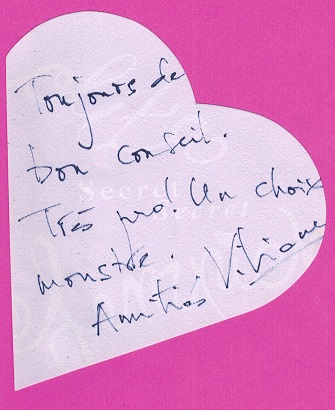 Toujours de
bon conseil.
Secret
Très pro. Un choix
Secret
monstre.
Amitiés Viviane